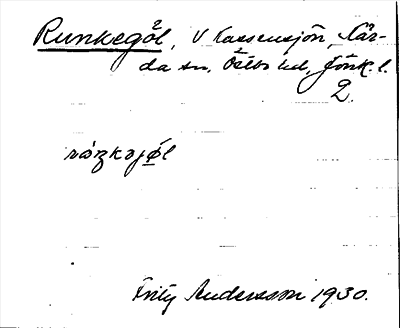 Runkegöl, V Kassensjön, Kär-
da sn, Östbo hd, Jönk. l.
2.
Frity Andersson 1930.